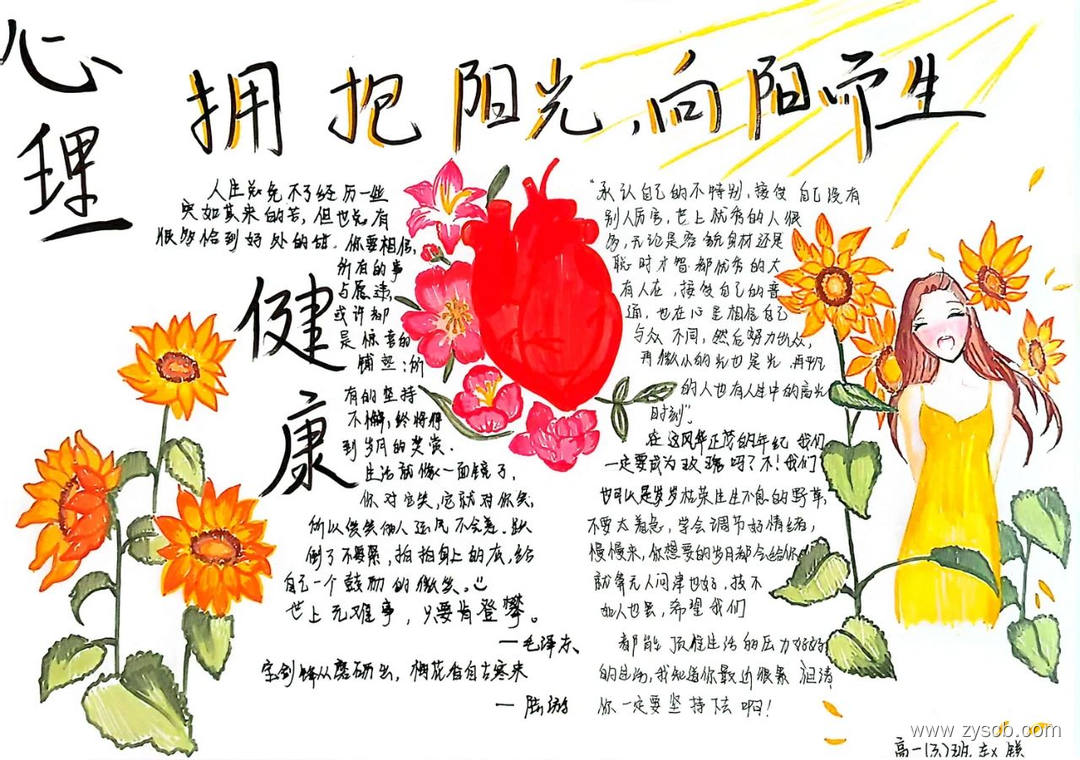 心理
健康
拥抱阳光,向阳而生
人生难免不了经历一些
突如其来的苦,但也总有
恨恰到好处的甜.你要相信,
所有的事
与愿违,
或许都
是惊喜的
铺垫;所
有的坚持
不懈,终将得
到岁月的奖赏.
生活就像一面镜子,
你对它笑,它就对你笑,
所以爱笑的人运气不会差.跌
倒了不要紧,拍拍身上的灰,给
自己一个鼓励的微笑。
世上无难事,只要肯登攀。
—毛泽东
宝剑锋从磨砺出,梅花香自苦寒来
—陆游
"承认自己的不特别,接受自己没有
别人厉害,世上优秀的人很
多,无论是容貌身材还是
聪明才智都优秀的大
有人在,接受自己的普
通,也在心里相信自己
与众不同,然后努力出众,
再微小的光也是光,再平凡
的人也有人生中的高光
时刻".
在这风华正茂的年纪我们
一定要成为玫瑰吗?不!我们
也可以是岁岁枯荣生生不息的野草,
不要太着急,学会调节好情绪,
慢慢来,你想要的岁月都会给你
就算无人问津也好,技不
如人也罢,希望我们
都能顶住生活的压力好好
的生活,我知道你最近很累但请
你一定要坚持下去啊!
www.zysob.com
高一(3)班.赵